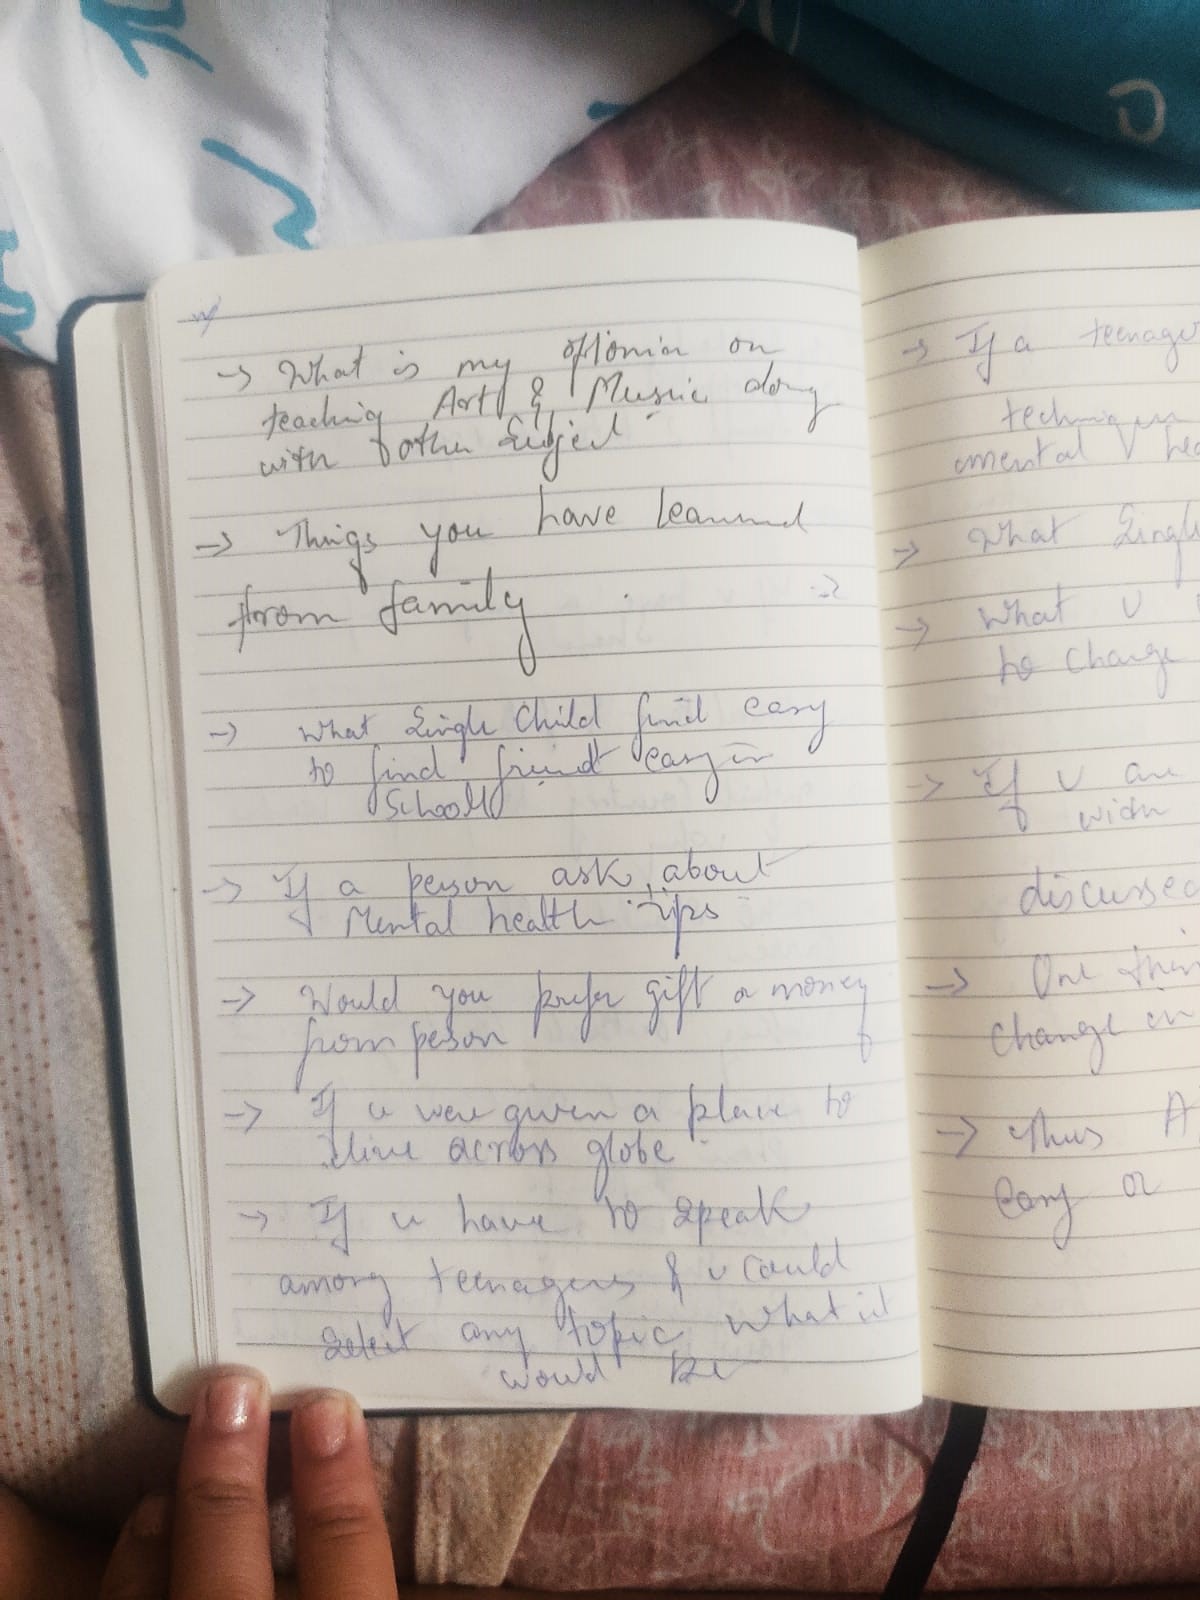 → What is my
on
teaching Art & Music along
with other Subject
→ Things you have learnned
from family
→ What Single Child find easy
to find friend easy in
School
→ If a person ask about
Mental health Tips
→ Would you prefer gift or money
from person
→ If u were given a place to
live across globe
→ If u have to speak
among teenagers & u could
Select any topic what it
would be
→ If a teenage
mental hea
→ What Singl
→ What U
to change
→ If U are
with
discussed
→ One thin
change in
→ Thus A
easy or